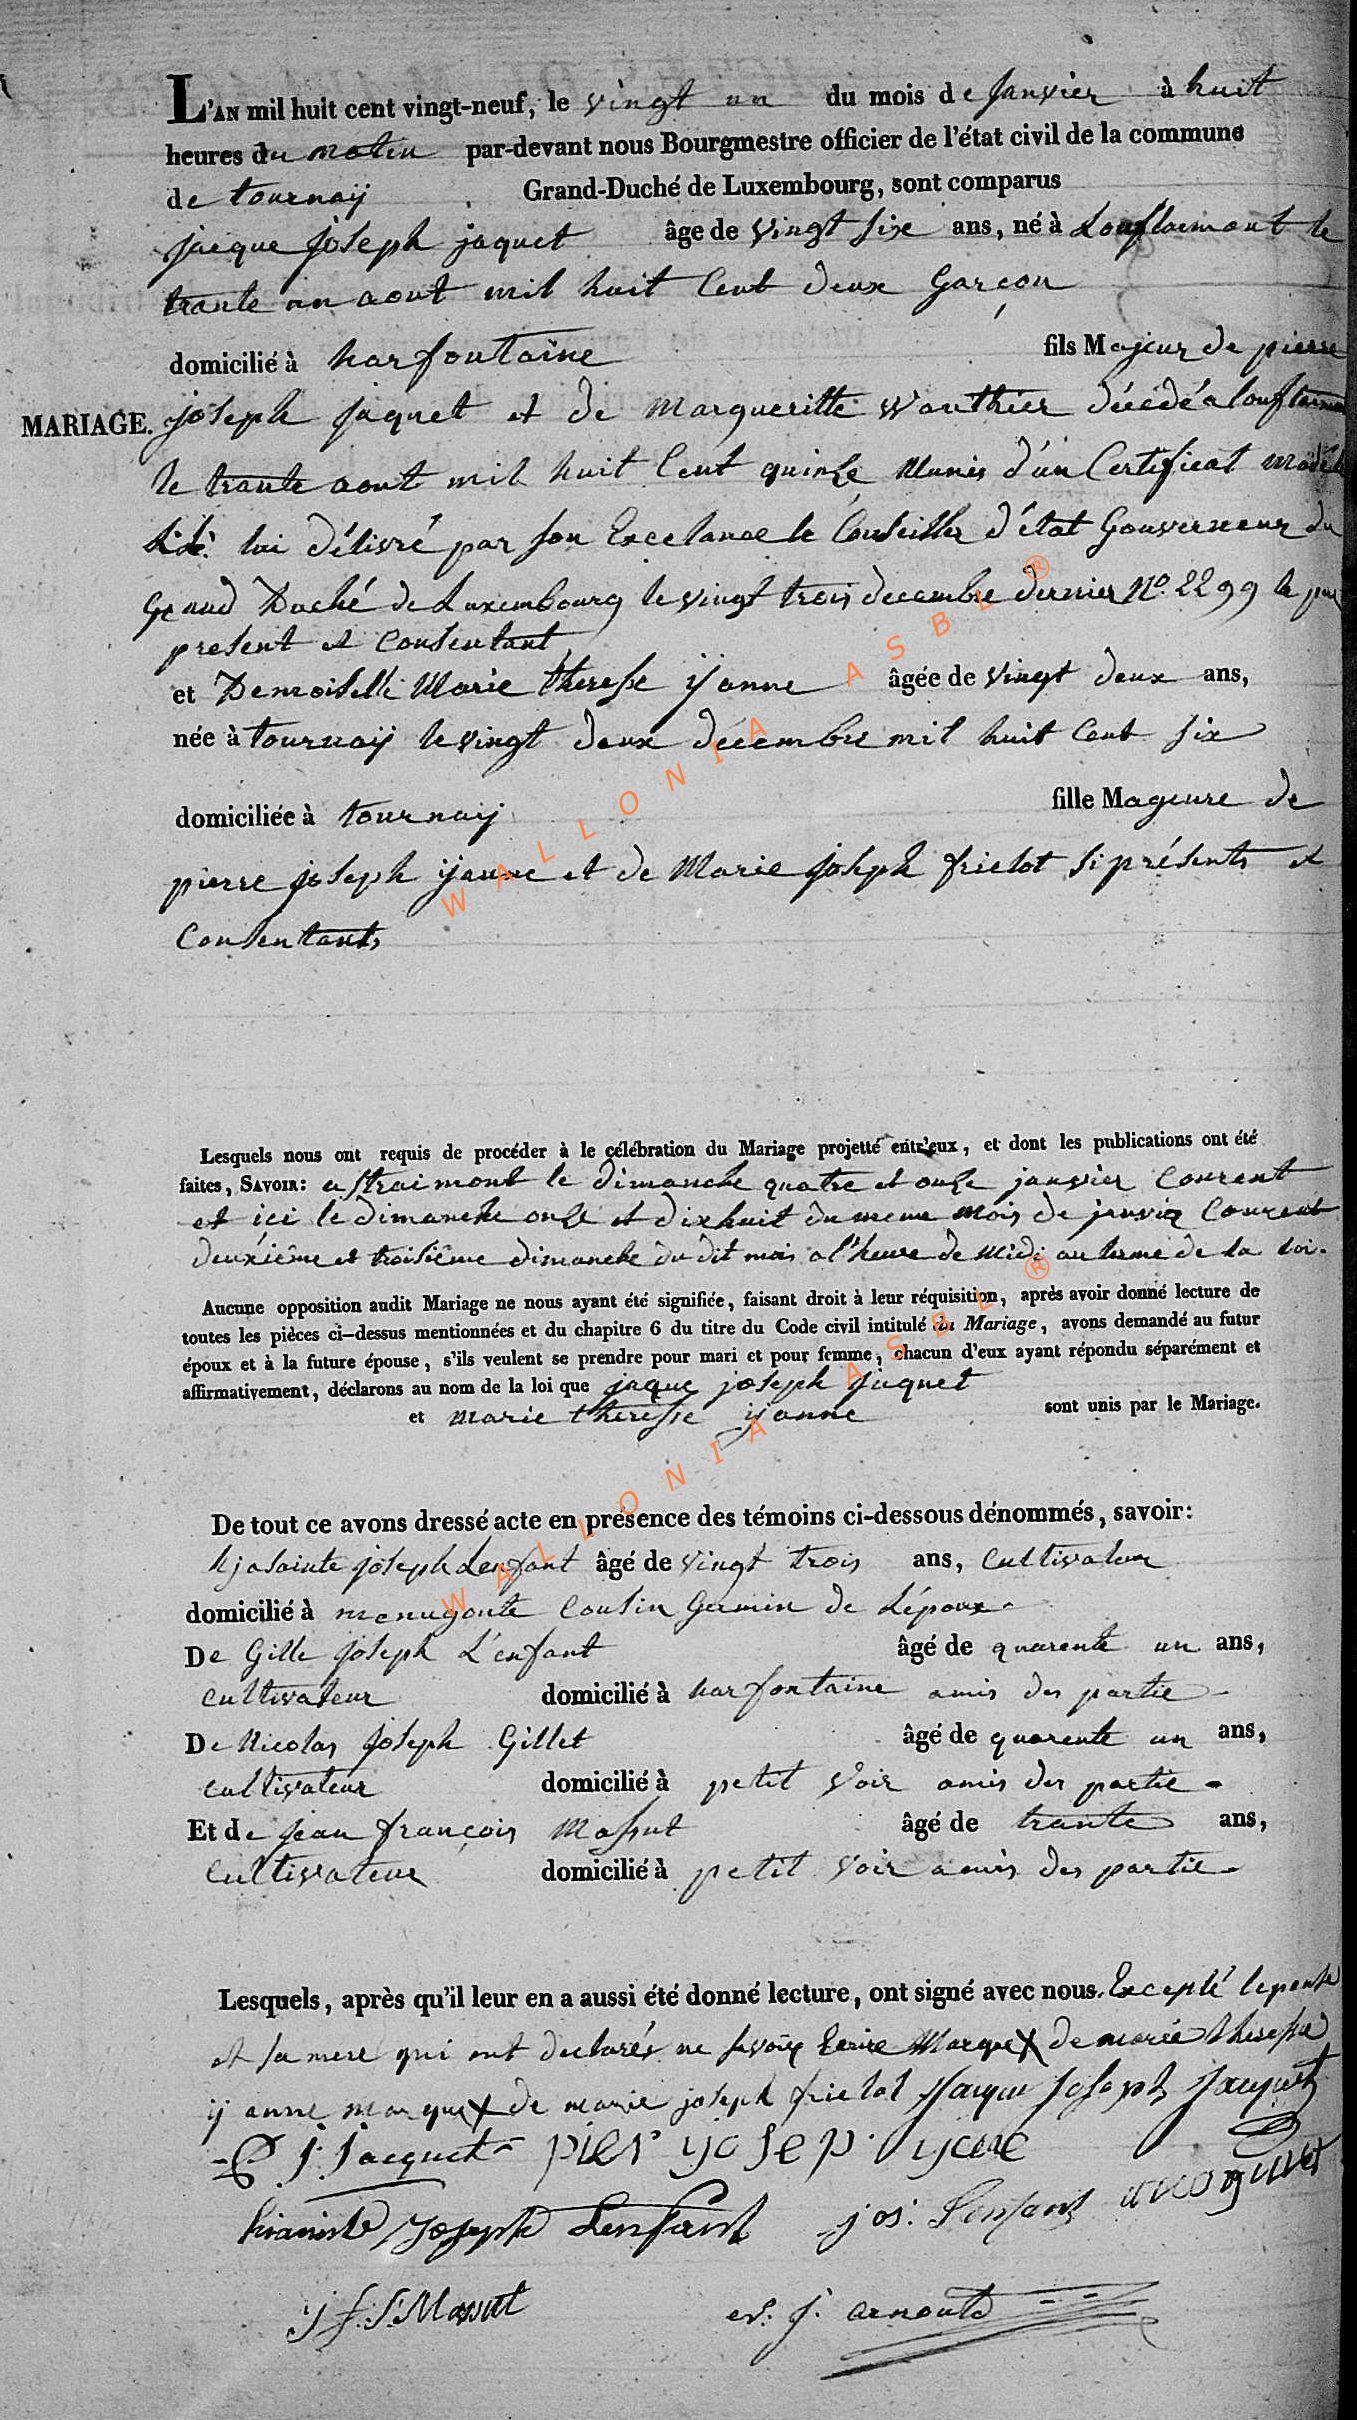 L'AN mil huit cent vingt-neuf, le vingt un du mois de Janvier à huit
heures du matin par-devant nous Bourgmestre officier de l'état civil de la commune
de tournaÿ Grand-Duché de Luxembourg, sont comparus
jacque joseph jaquet âge de vingt six ans, né à Louftaimont le
trante un aout mil huit Cent deux Garçon
domicilié à harfontaine fils Majeur de pierre
MARIAGE. joseph jaquet et de Margueritte Wauthier décédé a louftaimont
le trante aout mil huit Cent quinze Munis d'un Certificat modèle
lui délivré par son Excelance le Conseiller d'état Gouverneur du
Grand Duché de Luxembourg le vingt trois decembre dernier No. 2299 le
present et Consentant
et Demoiselle Marie theresse ÿanne âgée de vingt deux ans,
née à tournaÿ le vingt deux décembre mil huit Cent six
domiciliée à tournaÿ fille Mageure de
pierre joseph ÿanne et de Marie joseph frielot si présents et
Consentants
Lesquels nous ont requis de procéder à le célébration du Mariage projetté entr'eux, et dont les publications ont été
faites, SAVOIR: a straimont le dimanche quatre et onze janvier Courent
et ici le dimanche onze et dixhuit du meme mois de janvier Courent
deuxième et troisième dimanche du dit mois a l'heure de Midi au terme de la loi.
Aucune opposition audit Mariage ne nous ayant été signifiée, faisant droit à leur réquisition, après avoir donné lecture de
toutes les pièces ci-dessus mentionnées et du chapitre 6 du titre du Code civil intitulé du Mariage, avons demandé au futur
époux et à la future épouse, s'ils veulent se prendre pour mari et pour femme, chacun d'eux ayant répondu séparément et
affirmativement, déclarons au nom de la loi que jaque joseph jaquet
et marie theresse ÿanne sont unis par le Mariage.
De tout ce avons dressé acte en présence des témoins ci-dessous dénommés, savoir:
hjasainte joseph Lenfant âgé de vingt trois ans, Cultivateur
domicilié à menugoute Cousin Germin de L'époux
De Gille joseph L'enfant âgé de quarente un ans,
cultivateur domicilié à harfontaine amis des partie
De Nicolas joseph Gillet âgé de quarente un ans,
cultivateur domicilié à petit voir amis des partie
Et de jean françois Massut âgé de trante ans,
cultivateur domicilié à petit voir amis des partie
Lesquels, après qu'il leur en a aussi été donné lecture, ont signé avec nous. Excepté lepouse
et sa mere qui ont declarés ne savoir Ecrire Marque X de marie therese
ÿanne marque X de marie joseph frielot Jaque Joseph Jacquet
P J Jacquet pier josep yane
hiasinte Joseph Lenfant jos: Lenfant
j f J: Massut J: arnould
WALLONIA ASBL ®
WALLONIA ASBL ®